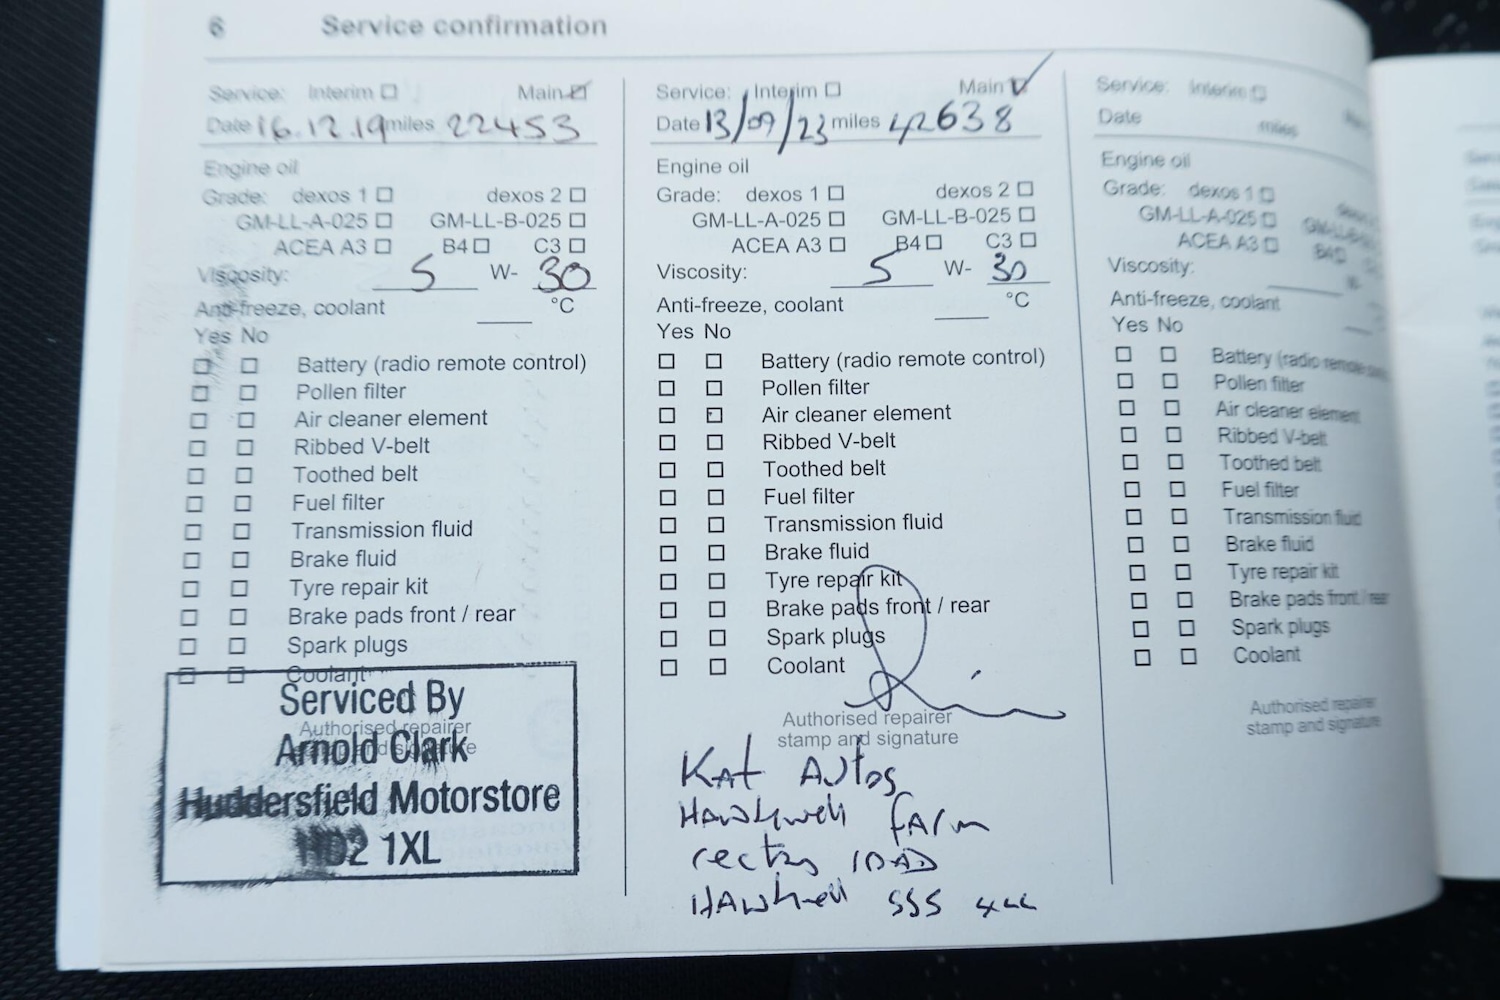 6 Service confirmation
Service: Interim Main
Date 16.12.19 miles 22453
Engine oil
Grade: dexos 1 dexos 2
GM-LL-A-025 GM-LL-B-025
ACEA A3 B4 C3
Viscosity: 5 W- 30
Anti-freeze, coolant °C
Yes No
Battery (radio remote control)
Pollen filter
Air cleaner element
Ribbed V-belt
Toothed belt
Fuel filter
Transmission fluid
Brake fluid
Tyre repair kit
Brake pads front / rear
Spark plugs
Coolant
Authorised repairer
stamp and signature
Serviced By
Arnold Clark
Huddersfield Motorstore
HD2 1XL
Service: Interim Main
Date 13/09/23 miles 42638
Engine oil
Grade: dexos 1 dexos 2
GM-LL-A-025 GM-LL-B-025
ACEA A3 B4 C3
Viscosity: 5 W- 30
Anti-freeze, coolant °C
Yes No
Battery (radio remote control)
Pollen filter
Air cleaner element
Ribbed V-belt
Toothed belt
Fuel filter
Transmission fluid
Brake fluid
Tyre repair kit
Brake pads front / rear
Spark plugs
Coolant
Authorised repairer
stamp and signature
Kat Autos
Hawkwell farm
rectory ROAD
Hawkwell SS5
Service: Interim
Date miles
Engine oil
Grade: dexos 1
GM-LL-A-025
ACEA A3 B4
Viscosity: W-
Anti-freeze, coolant
Yes No
Battery (radio remote
Pollen filter
Air cleaner element
Ribbed V-belt
Toothed belt
Fuel filter
Transmission fluid
Brake fluid
Tyre repair kit
Brake pads front / rear
Spark plugs
Coolant
Authorised repairer
stamp and signature